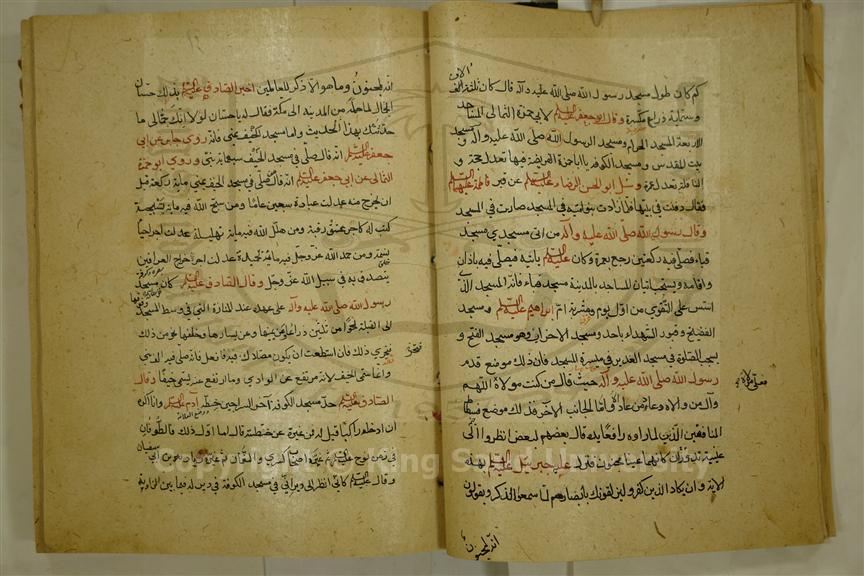 كم كان طول مسجد رسول الله صلى الله عليه وآله قال كان ثلثة آلاف
وستمائة ذراع مكسرة وقال ابو جعفر عليه السلم لابي حمزة الثمالي المساجد
الاربعة المسجد الحرام ومسجد الرسول صلى الله عليه وآله ومسجد
بيت المقدس ومسجد الكوفة يا با حمزة الفريضة فيها تعدل حجة و
النافلة تعدل عمرة وسئل ابو الحسن الرضا عليه السلم عن قبر فاطمة عليها السلم
فقال دفنت في بيتها فلما زادت بنو امية في المسجد صارت في المسجد
وقال رسول الله صلى الله عليه وآله من اتى مسجدي مسجد
قبا فصلى فيه ركعتين رجع بعمرة وكان عليه السلم ياتيه فيصلي فيه باذان
واقامة ويستحب اتيان المساجد بالمدينة مسجد قبا فانه المسجد الذي
اسس على التقوى من اول يوم ومشربة ام ابراهيم عليه السلم ومسجد
الفضيخ وقبور الشهداء باحد ومسجد الاحزاب وهو مسجد الفتح و
يستحب الصلوة في مسجد الغدير في ميسرة المسجد فان ذلك موضع قدم
رسول الله صلى الله عليه وآله حيث قال من كنت مولاه اللهم
وال من والاه وعاد من عاداه واما الجانب الآخر فذلك موضع فسطاط
المنافقين الذين لما راوه رافعا يده قال بعضهم لبعض انظروا الى
عينيه تدوران كانهما عينا مجنون فنزل جبرئيل عليه السلم بهذه
الاية وان يكاد الذين كفروا ليزلقونك بابصارهم لما سمعوا الذكر ويقولون
انه لمجنون
انه لمجنون وما هو الا ذكر للعالمين اخبر الصادق عليه السلم بذلك حسان
الجمال لما حمله من المدينة الى مكة فقال له يا حسان لولا انك جمالي ما
حدثتك بهذا الحديث واما مسجد الخيف بمنى فانه روى جابر عن ابي
جعفر عليه السلم انه قال صلى في مسجد الخيف سبعمائة نبي وروى ابو حمزة
الثمالي عن ابي جعفر عليه السلم انه قال من صلى في مسجد الخيف بمنى مائة ركعة قبل
ان يخرج منه عدلت عبادة سبعين عاما ومن سبح الله فيه مائة تسبيحة
كتب له كاجر عتق رقبة ومن هلل الله فيه مائة تهليلة عدلت اجر احياء
نسمة ومن حمد الله عز وجل فيه مائة تحميدة عدلت اجر خراج العراقين
يتصدق به في سبيل الله عز وجل وقال الصادق عليه السلم كان مسجد
رسول الله صلى الله عليه وآله على عهده عند المنارة التي في وسط المسجد
الى القبلة نحوا من ثلثين ذراعا وعن يمينها وعن يسارها وخلفها نحو من ذلك
فتحر ذلك فان استطعت ان يكون مصلاك فيه فافعل فانه صلى فيه الف نبي
وانما سمي الخيف لانه مرتفع عن الوادي وما ارتفع عنه يسمى خيفا وقال
الصادق عليه السلم حد مسجد الكوفة آخر السراجين خطه آدم عليه السلم وانا اكره
ان ادخله راكبا قيل له فمن غيره عن خطته قال اما اول ذلك فالطوفان
في زمن نوح عليه السلم ثم غيره اصحاب كسرى والنعمان ثم غيره زياد بن ابي سفيان
وقال عليه السلم كاني انظر الى ديراني في مسجد الكوفة في دير له فيما بين الزاوية